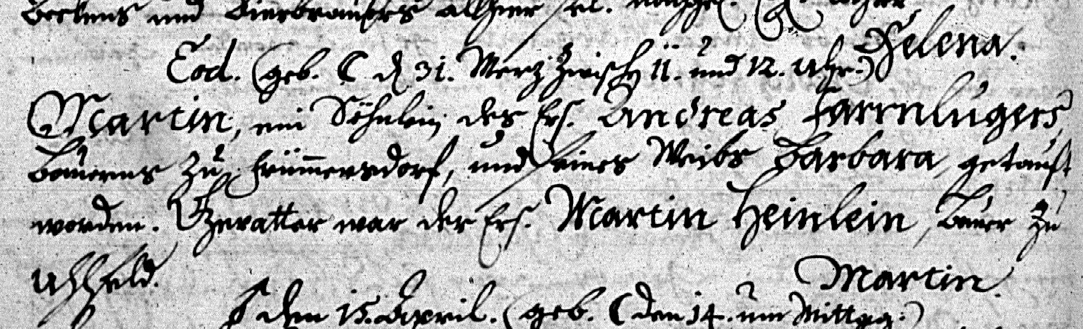 Beckens und Bierbrauers allhier
Helena.
Eod. (geb. ☾ d 31. Merz zwisch 11. und 12. Uhr.)
Martin, ein Söhnlein des Ers. Andreas Farrnlugers
Bauerns zu Frimmersdorf, und seines Weibs Barbara, getauft
worden. Gevatter war der Ers. Martin Heinlein, Bauer zu
Uhlfeld.
Martin.
den 15. April. (geb. ☾ den 14. um Mittag:)